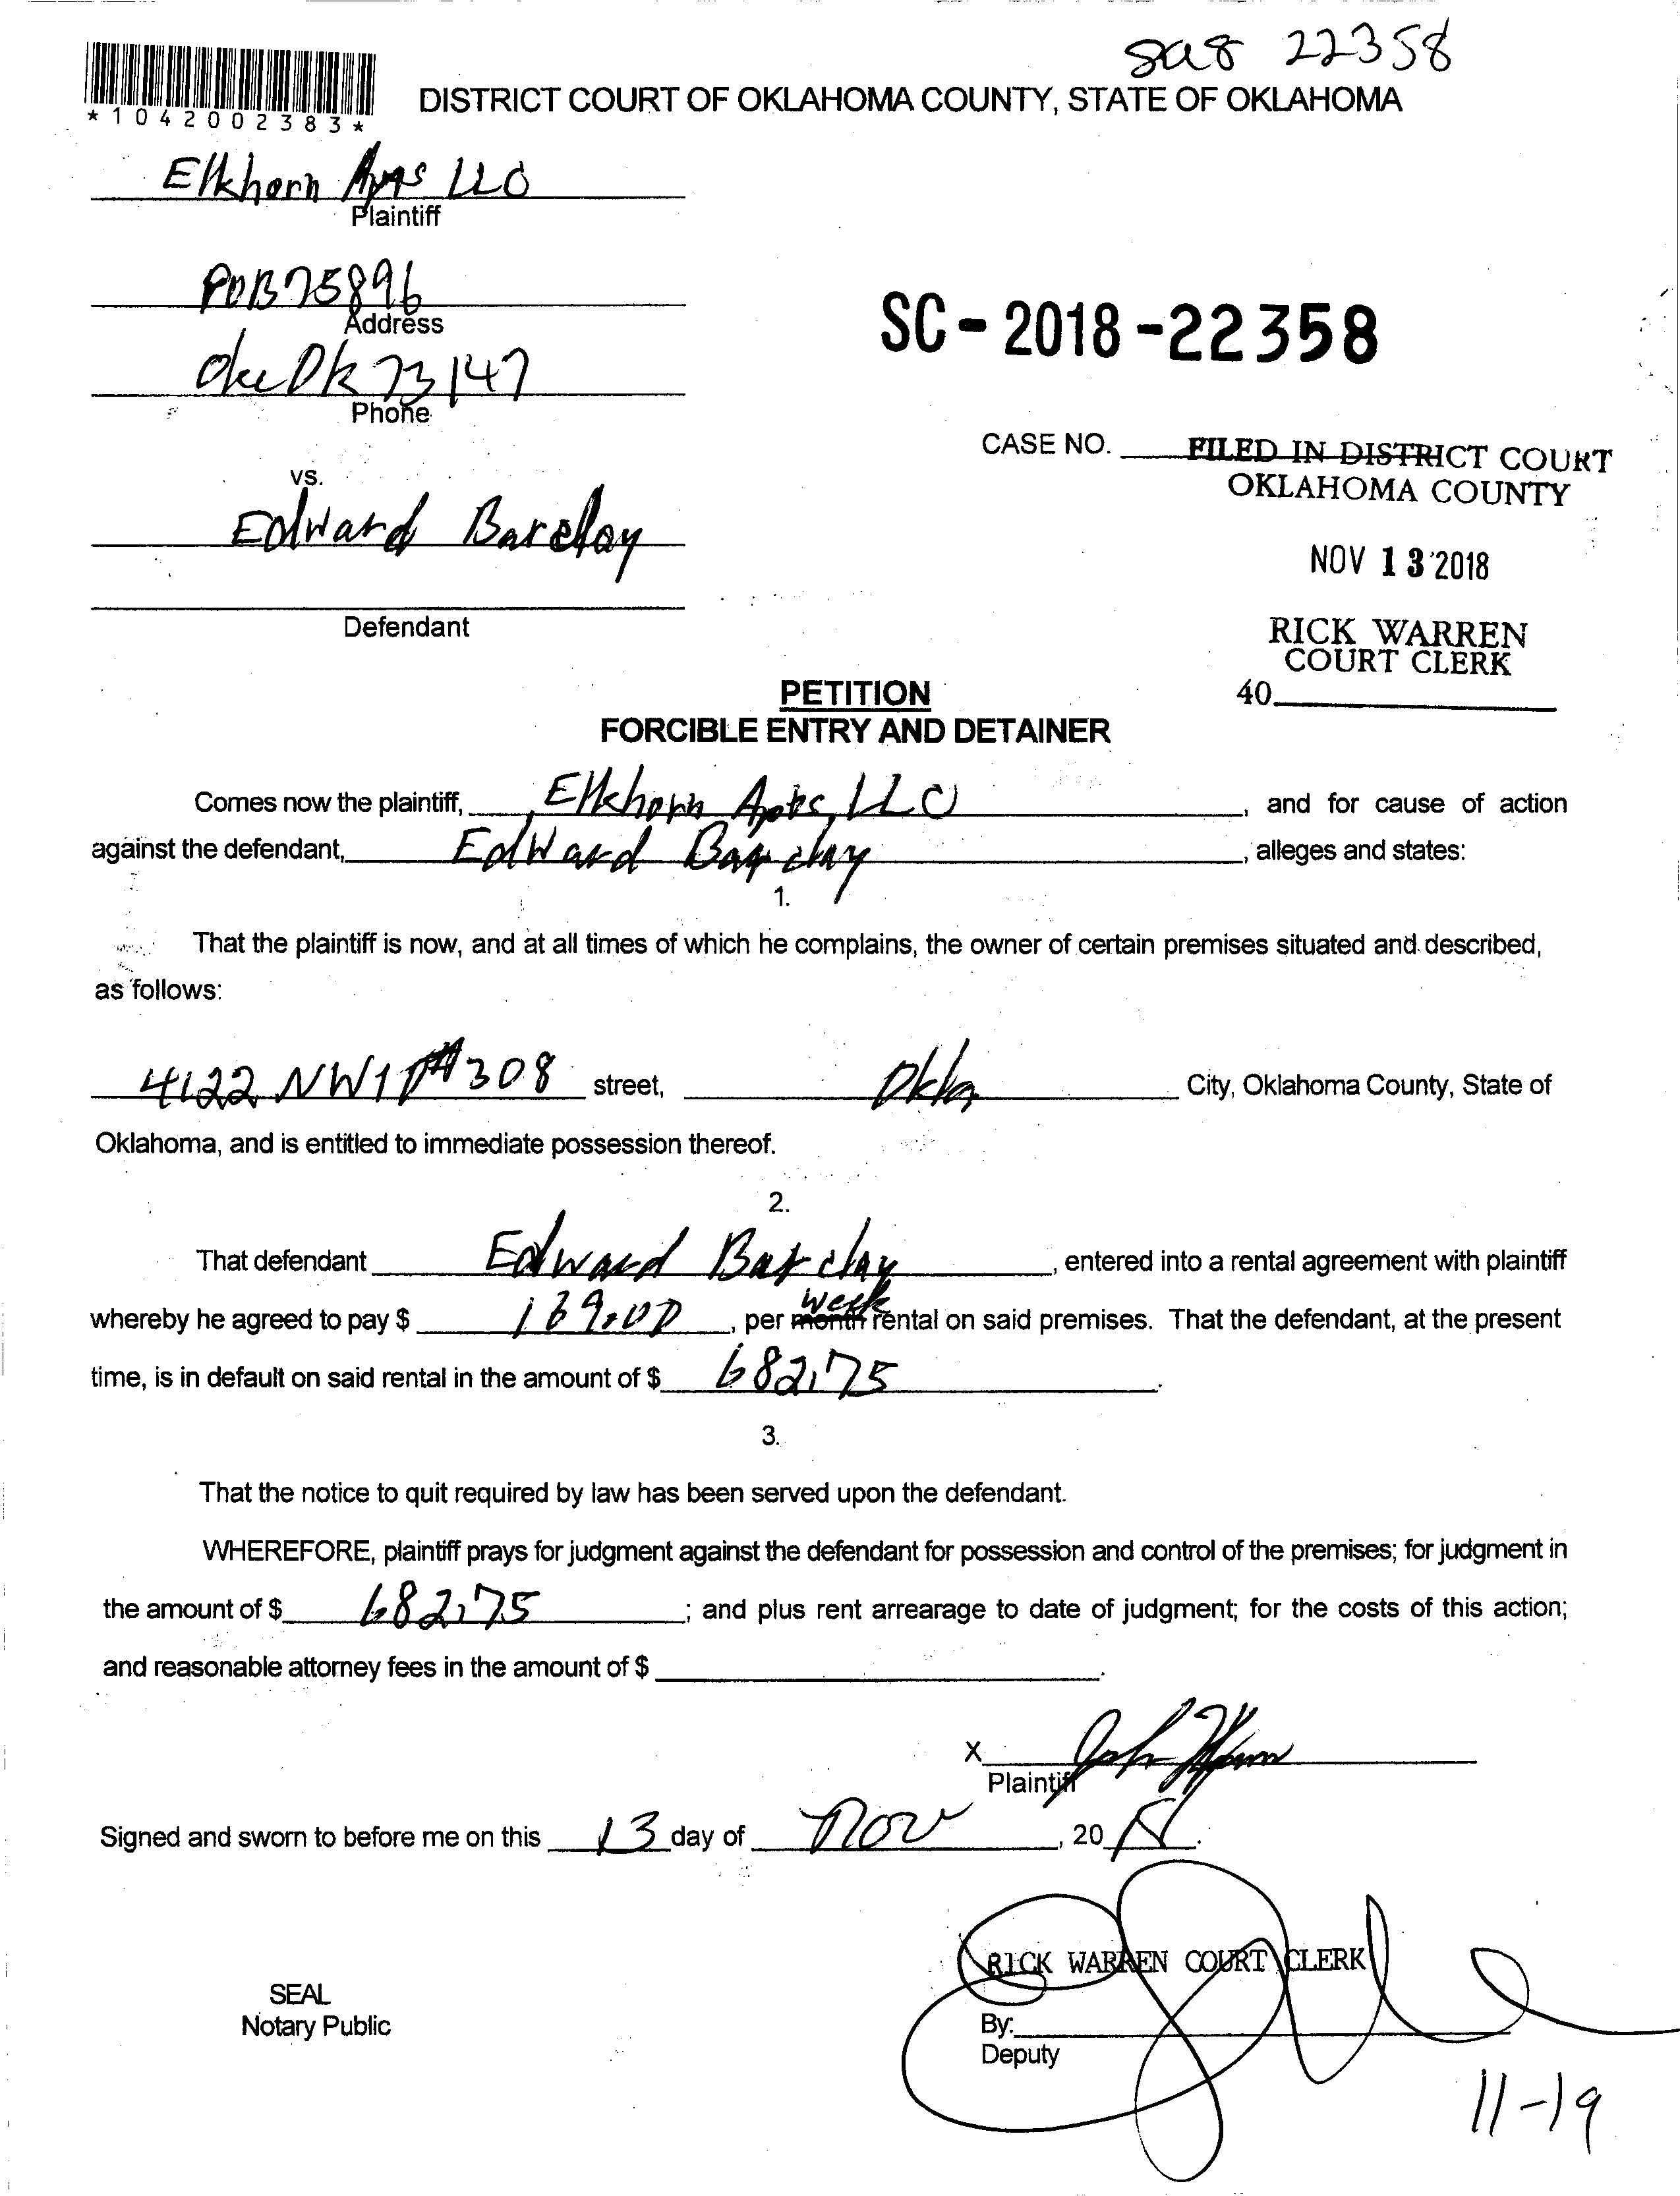 sc18 22358
*1042002383*
DISTRICT COURT OF OKLAHOMA COUNTY, STATE OF OKLAHOMA
Elkhorn Apts LLC
Plaintiff
POB 75896
Address
SC-2018-22358
Okc Ok 73147
Phone
CASE NO.
FILED IN DISTRICT COURT
OKLAHOMA COUNTY
vs.
Edward Barclay
NOV 13 2018
Defendant
RICK WARREN
COURT CLERK
40
PETITION
FORCIBLE ENTRY AND DETAINER
Comes now the plaintiff, Elkhorn Apts, LLC, and for cause of action
against the defendant, Edward Barclay, alleges and states:
1.
That the plaintiff is now, and at all times of which he complains, the owner of certain premises situated and described,
as follows:
4122 NW10 #308 street, Okla City, Oklahoma County, State of
Oklahoma, and is entitled to immediate possession thereof.
2.
That defendant Edward Barclay, entered into a rental agreement with plaintiff
week
whereby he agreed to pay $ 169.00, per month rental on said premises. That the defendant, at the present
time, is in default on said rental in the amount of $ 682.75.
3.
That the notice to quit required by law has been served upon the defendant.
WHEREFORE, plaintiff prays for judgment against the defendant for possession and control of the premises; for judgment in
the amount of $ 682.75; and plus rent arrearage to date of judgment; for the costs of this action;
and reasonable attorney fees in the amount of $ .
X John
Plaintiff
Signed and sworn to before me on this 13 day of Nov, 20 18.
RICK WARREN COURT CLERK
SEAL
Notary Public
By:
Deputy
11-19